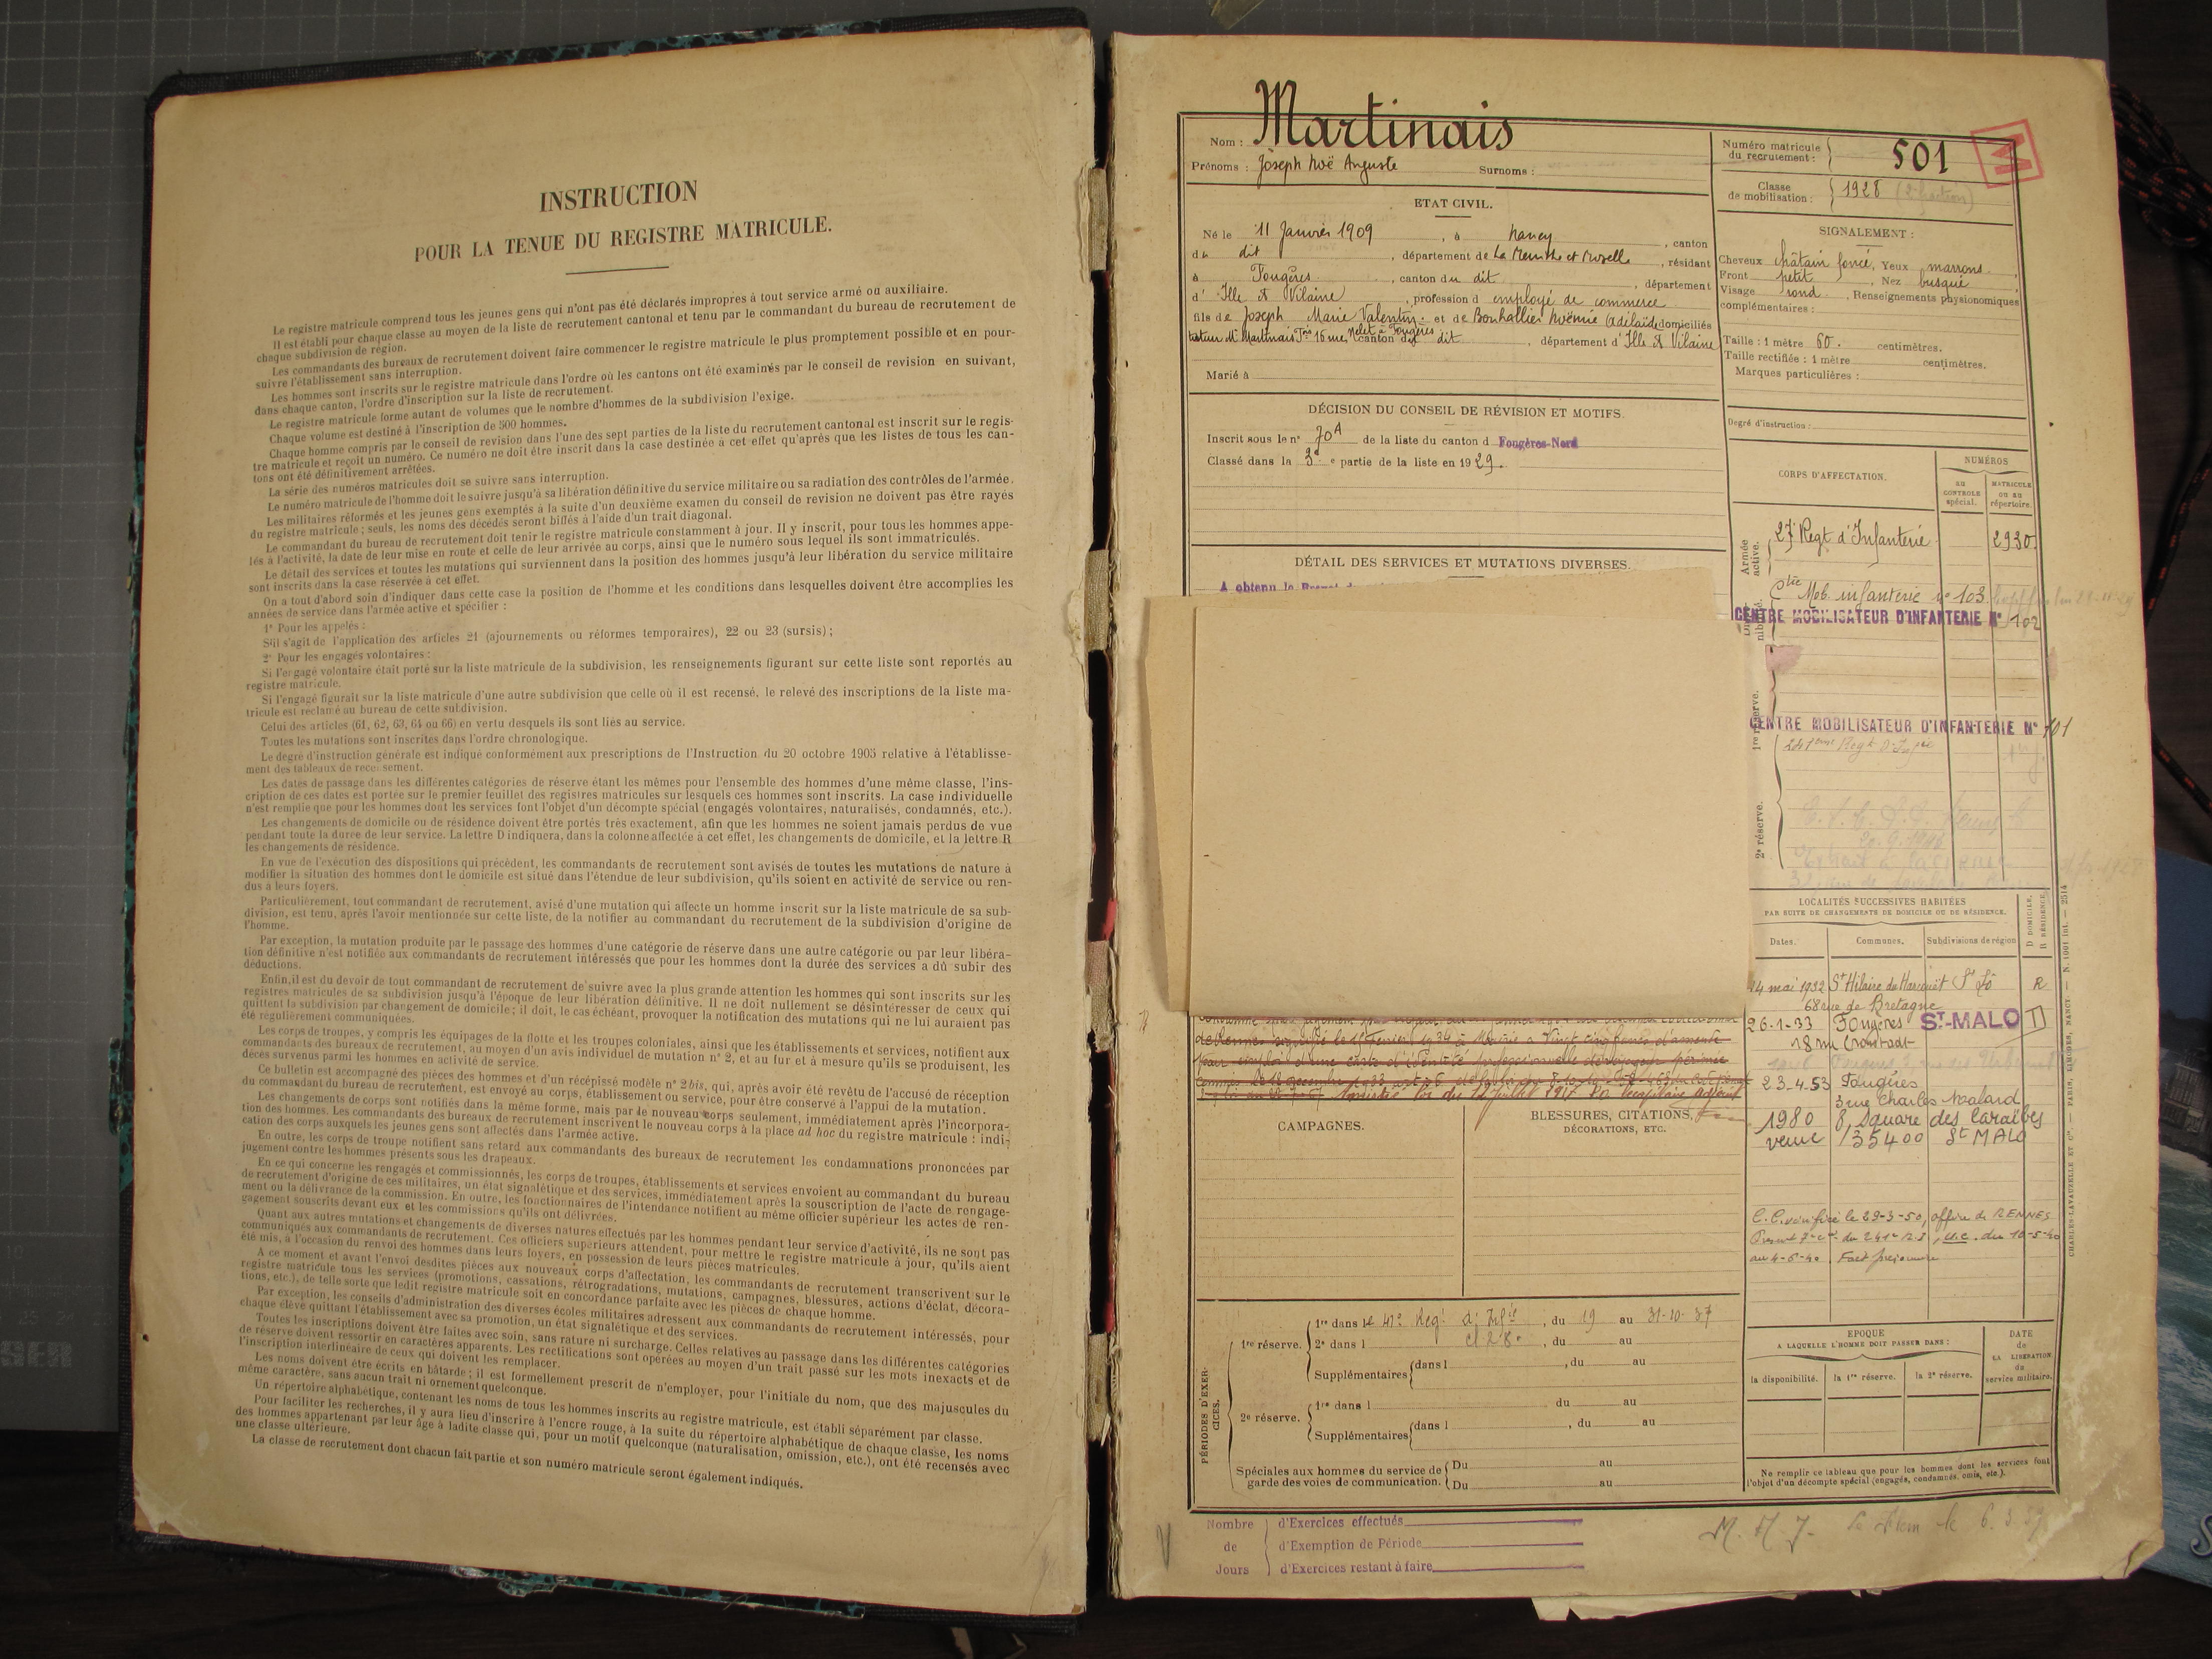 INSTRUCTION
POUR LA TENUE DU REGISTRE MATRICULE.
Le registre matricule comprend tous les jeunes gens qui n'ont pas été déclarés impropres à tout service armé ou auxiliaire.
Il est établi pour chaque classe au moyen de la liste de recrutement cantonal et tenu par le commandant du bureau de recrutement de
chaque subdivision de région.
Les commandants des bureaux de recrutement doivent faire commencer le registre matricule le plus promptement possible et en pour-
suivre l'établissement sans interruption.
Les hommes sont inscrits sur le registre matricule dans l'ordre où les cantons ont été examinés par le conseil de revision en suivant,
dans chaque canton, l'ordre d'inscription sur la liste de recrutement.
Le registre matricule forme autant de volumes que le nombre d'hommes de la subdivision l'exige.
Chaque volume est destiné à l'inscription de 500 hommes.
Chaque homme compris par le conseil de revision dans l'une des sept parties de la liste du recrutement cantonal est inscrit sur le regis-
tre matricule et reçoit un numéro. Ce numéro ne doit être inscrit dans la case destinée à cet effet qu'après que les listes de tous les can-
tons ont été définitivement arrêtées.
La série des numéros matricules doit se suivre sans interruption.
Le numéro matricule de l'homme doit le suivre jusqu'à sa libération définitive du service militaire ou sa radiation des contrôles de l'armée.
Les militaires réformés et les jeunes gens exemptés à la suite d'un deuxième examen du conseil de revision ne doivent pas être rayés
du registre matricule; seuls, les noms des décédés seront biffés à l'aide d'un trait diagonal.
Le commandant du bureau de recrutement doit tenir le registre matricule constamment à jour. Il y inscrit, pour tous les hommes appe-
lés à l'activité, la date de leur mise en route et celle de leur arrivée au corps, ainsi que le numéro sous lequel ils sont immatriculés.
Le détail des services et toutes les mutations qui surviennent dans la position des hommes jusqu'à leur libération du service militaire
sont inscrits dans la case réservée à cet effet.
On a tout d'abord soin d'indiquer dans cette case la position de l'homme et les conditions dans lesquelles doivent être accomplies les
années de service dans l'armée active et spécifier :
1° Pour les appelés :
S'il s'agit de l'application des articles 21 (ajournements ou réformes temporaires), 22 ou 23 (sursis);
2° Pour les engagés volontaires :
Si l'engagé volontaire était porté sur la liste matricule de la subdivision, les renseignements figurant sur cette liste sont reportés au
registre matricule.
Si l'engagé figurait sur la liste matricule d'une autre subdivision que celle où il est recensé, le relevé des inscriptions de la liste ma-
tricule est réclamé au bureau de cette subdivision.
Celui des articles (61, 62, 63, 64 ou 66) en vertu desquels ils sont liés au service.
Toutes les mutations sont inscrites dans l'ordre chronologique.
Le degré d'instruction générale est indiqué conformément aux prescriptions de l'Instruction du 20 octobre 1905 relative à l'établisse-
ment des tableaux de recensement.
Les dates de passage dans les différentes catégories de réserve étant les mêmes pour l'ensemble des hommes d'une même classe, l'ins-
cription de ces dates est portée sur le premier feuillet des registres matricules sur lesquels ces hommes sont inscrits. La case individuelle
n'est remplie que pour les hommes dont les services font l'objet d'un décompte spécial (engagés volontaires, naturalisés, condamnés, etc.).
Les changements de domicile ou de résidence doivent être portés très exactement, afin que les hommes ne soient jamais perdus de vue
pendant toute la durée de leur service. La lettre D indiquera, dans la colonne affectée à cet effet, les changements de domicile, et la lettre R
les changements de résidence.
En vue de l'exécution des dispositions qui précèdent, les commandants de recrutement sont avisés de toutes les mutations de nature à
modifier la situation des hommes dont le domicile est situé dans l'étendue de leur subdivision, qu'ils soient en activité de service ou ren-
dus à leurs foyers.
Particulièrement, tout commandant de recrutement, avisé d'une mutation qui affecte un homme inscrit sur la liste matricule de sa sub-
division, est tenu, après l'avoir mentionnée sur cette liste, de la notifier au commandant du recrutement de la subdivision d'origine de
l'homme.
Par exception, la mutation produite par le passage des hommes d'une catégorie de réserve dans une autre catégorie ou par leur libéra-
tion définitive n'est notifiée aux commandants de recrutement intéressés que pour les hommes dont la durée des services a dû subir des
déductions.
Enfin, il est du devoir de tout commandant de recrutement de suivre avec la plus grande attention les hommes qui sont inscrits sur les
registres matricules de sa subdivision jusqu'à l'époque de leur libération définitive. Il ne doit nullement se désintéresser de ceux qui
quittent la subdivision par changement de domicile; il doit, le cas échéant, provoquer la notification des mutations qui ne lui auraient pas
été régulièrement communiquées.
Les corps de troupes, y compris les équipages de la flotte et les troupes coloniales, ainsi que les établissements et services, notifient aux
commandants des bureaux de recrutement, au moyen d'un avis individuel de mutation n° 2, et au fur et à mesure qu'ils se produisent, les
décès survenus parmi les hommes en activité de service.
Ce bulletin est accompagné des pièces des hommes et d'un récépissé modèle n° 2 bis, qui, après avoir été revêtu de l'accusé de réception
du commandant du bureau de recrutement, est envoyé au corps, établissement ou service, pour être conservé à l'appui de la mutation.
Les changements de corps sont notifiés dans la même forme, mais par le nouveau corps seulement, immédiatement après l'incorpora-
tion des hommes. Les commandants des bureaux de recrutement inscrivent le nouveau corps à la place ad hoc du registre matricule : indi-
cation des corps auxquels les jeunes gens sont affectés dans l'armée active.
En outre, les corps de troupe notifient sans retard aux commandants des bureaux de recrutement les condamnations prononcées par
jugement contre les hommes présents sous les drapeaux.
En ce qui concerne les rengagés et commissionnés, les corps de troupes, établissements et services envoient au commandant du bureau
de recrutement d'origine de ces militaires, un état signalétique et des services, immédiatement après la souscription de l'acte de rengage-
ment ou la délivrance de la commission. En outre, les fonctionnaires de l'intendance notifient au même officier supérieur les actes de ren-
gagement souscrits devant eux et les commissions qu'ils ont délivrées.
Quant aux autres mutations et changements de diverses natures effectués par les hommes pendant leur service d'activité, ils ne sont pas
communiqués aux commandants de recrutement. Ces officiers supérieurs attendent, pour mettre le registre matricule à jour, qu'ils aient
été mis, à l'occasion du renvoi des hommes dans leurs foyers, en possession de leurs pièces matricules.
A ce moment et avant l'envoi desdites pièces aux nouveaux corps d'affectation, les commandants de recrutement transcrivent sur le
registre matricule tous les services (promotions, cassations, rétrogradations, mutations, campagnes, blessures, actions d'éclat, décora-
tions, etc.), de telle sorte que ledit registre matricule soit en concordance parfaite avec les pièces de chaque homme.
Par exception, les conseils d'administration des diverses écoles militaires adressent aux commandants de recrutement intéressés, pour
chaque élève quittant l'établissement avec sa promotion, un état signalétique et des services.
Toutes les inscriptions doivent être faites avec soin, sans rature ni surcharge. Celles relatives au passage dans les différentes catégories
de réserve doivent ressortir en caractères apparents. Les rectifications sont opérées au moyen d'un trait passé sur les mots inexacts et de
l'inscription interlinéaire de ceux qui doivent les remplacer.
Les noms doivent être écrits en bâtarde; il est formellement prescrit de n'employer, pour l'initiale du nom, que des majuscules du
même caractère, sans aucun trait ni ornement quelconque.
Un répertoire alphabétique, contenant les noms de tous les hommes inscrits au registre matricule, est établi séparément par classe.
Pour faciliter les recherches, il y aura lieu d'inscrire à l'encre rouge, à la suite du répertoire alphabétique de chaque classe, les noms
des hommes appartenant par leur âge à ladite classe qui, pour un motif quelconque (naturalisation, omission, etc.), ont été recensés avec
une classe ultérieure.
La classe de recrutement dont chacun fait partie et son numéro matricule seront également indiqués.
Nom : Martinais
Prénoms : Joseph Noë Auguste Surnoms :
Numéro matricule du recrutement : 501
M
Classe de mobilisation : 1928
ETAT CIVIL.
Né le 11 Janvier 1909, à Nancy, canton
du dit, département de La Meurthe et Moselle, résidant
à Fougères, canton du dit, département
d'Ille & Vilaine, profession d employé de commerce
fils de Joseph Marie Valentin et de Bonhallier Noëmie Adélaïde domiciliés
tuteur Mr Martinais 16 rue à Fougères canton du dit, département d'Ille & Vilaine
Marié à
SIGNALEMENT :
Cheveux châtain foncé, Yeux marrons,
Front petit, Nez busqué
Visage rond, Renseignements physionomiques
complémentaires :
Taille : 1 mètre 60. centimètres.
Taille rectifiée : 1 mètre centimètres.
Marques particulières :
Degré d'instruction :
DÉCISION DU CONSEIL DE RÉVISION ET MOTIFS.
Inscrit sous le n° 70A de la liste du canton d Fougères-Nord
Classé dans la 3e partie de la liste en 1929.
DÉTAIL DES SERVICES ET MUTATIONS DIVERSES.
A obtenu le Brevet
CORPS D'AFFECTATION.
NUMÉROS
AU CONTROLE spécial.
MATRICULE ou au répertoire.
Armée active.
27e Regt d'Infanterie 2930
Mob. infanterie n° 103
CENTRE MOBILISATEUR D'INFANTERIE N° 102
1re réserve.
CENTRE MOBILISATEUR D'INFANTERIE N° 101
2e réserve.
LOCALITÉS SUCCESSIVES HABITÉES
PAR SUITE DE CHANGEMENTS DE DOMICILE OU DE RÉSIDENCE.
Dates. Communes. Subdivisions de région
D DOMICILE, R RÉSIDENCE.
14 mai 1932 St Hilaire du Harcouët St Lô R
68 rue de Bretagne
26-1-33 Fougères ST-MALO D
18 rue Cronstadt
23-4-53 Fougères
3 rue Charles Malard
1980 8, Square des Caraïbes
35400 St MALO
le 29-3-50, office de RENNES
du 241e R.I., du 10-5-40
au 4-6-40. Fait prisonnier
CAMPAGNES.
BLESSURES, CITATIONS,
DÉCORATIONS, ETC.
PÉRIODES D'EXERCICES.
1re réserve. 1re dans le 41e Regt d'Infie, du 19 au 31-10-37
2e dans l Cl 28, du au
Supplémentaires dans l, du au
2e réserve. 1re dans l du au
Supplémentaires dans l, du au
Spéciales aux hommes du service de
garde des voies de communication. Du au
Du au
EPOQUE
A LAQUELLE L'HOMME DOIT PASSER DANS :
la disponibilité. la 1re réserve. la 2e réserve.
DATE de LA LIBERATION du service militaire.
Ne remplir ce tableau que pour les hommes dont les services font
l'objet d'un décompte spécial (engagés, condamnés, omis, etc.).
CHARLES-LAVAUZELLE ET Cie. — PARIS, LIMOGES, NANCY. — N. 1001 int. — 2514
Nombre de Jours
d'Exercices effectués
d'Exemption de Période
d'Exercices restant à faire